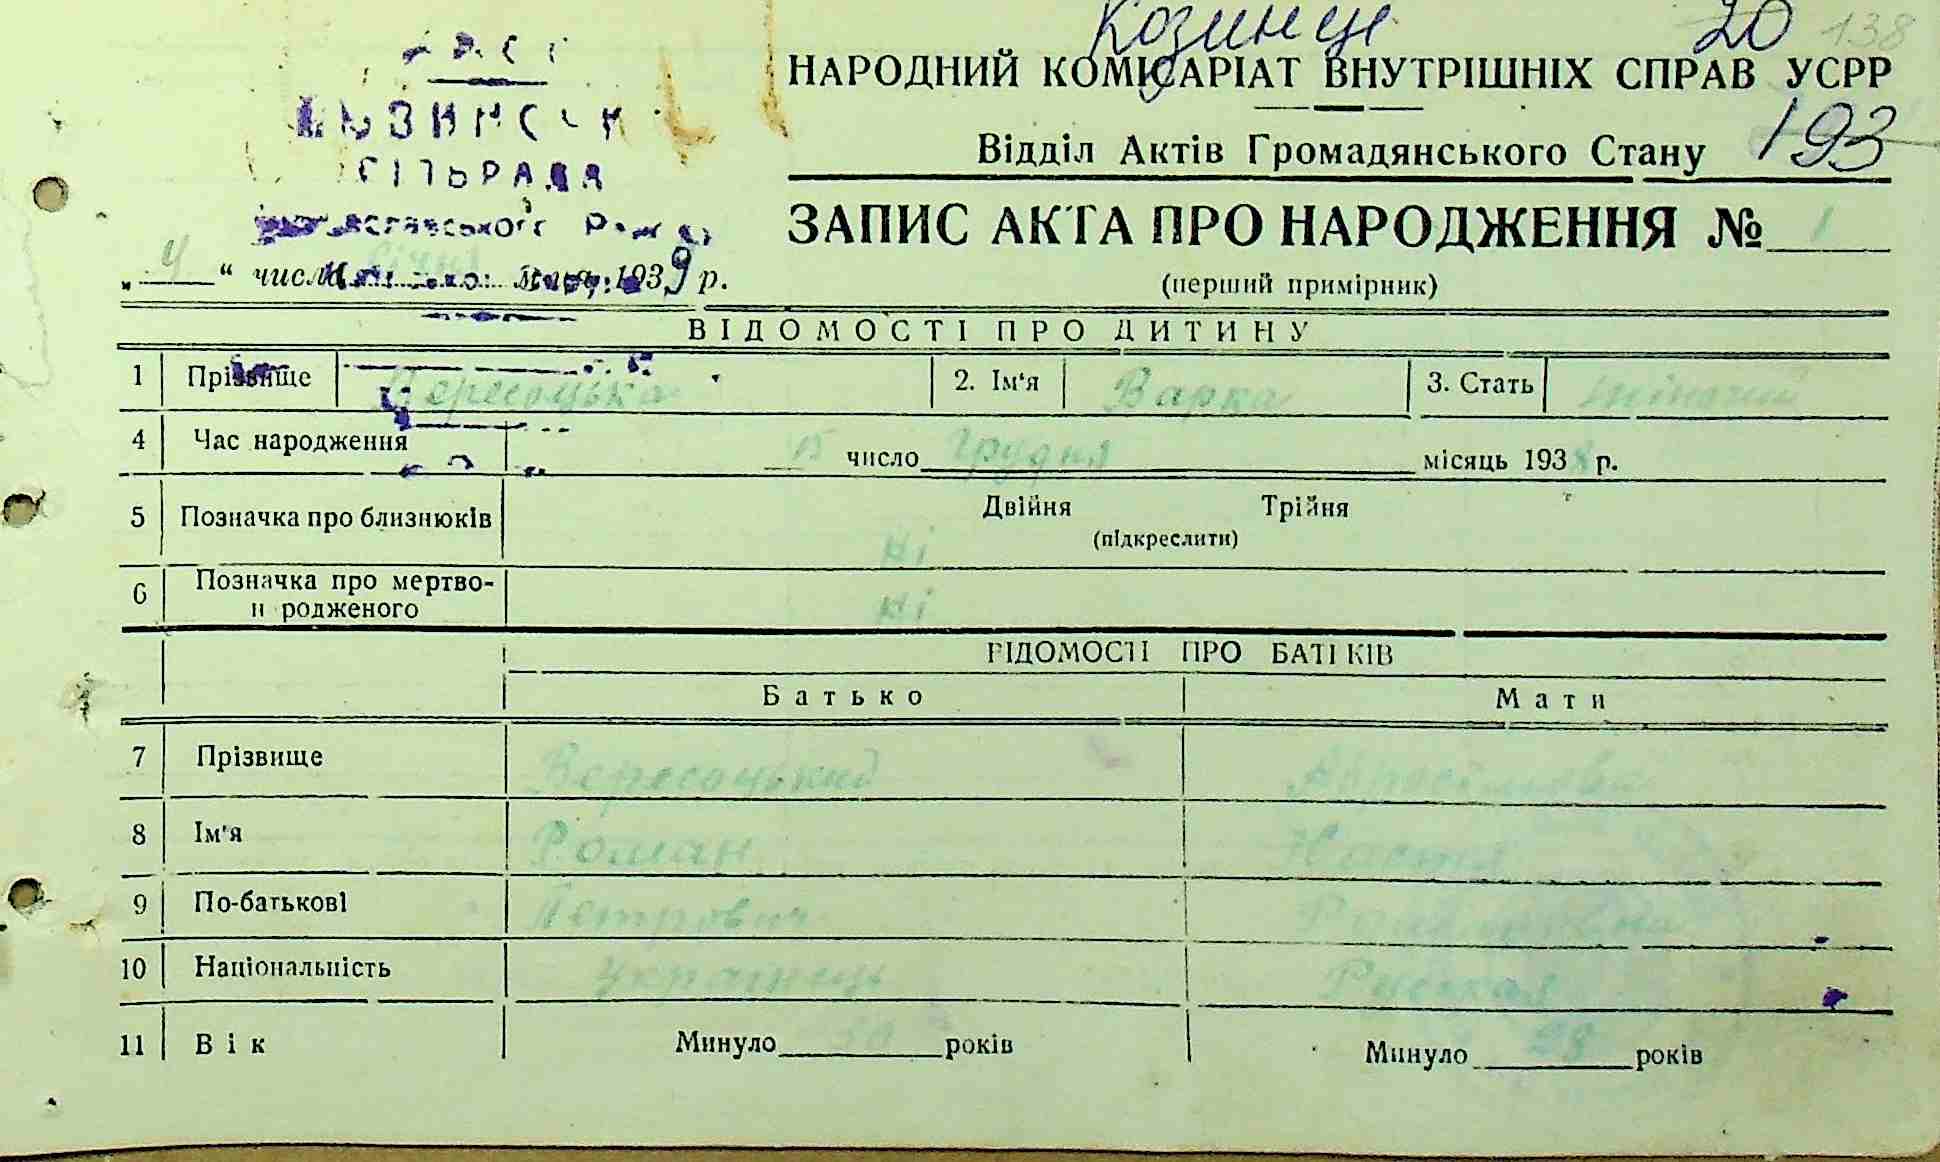 Козинці 20 138
НАРОДНИЙ КОМІСАРІАТ ВНУТРІШНІХ СПРАВ УСРР
193
Відділ Актів Громадянського Стану
СІЛЬРАДА
ЗАПИС АКТА ПРО НАРОДЖЕННЯ № 1
(перший примірник)
„ 4 “ числа січня 1939 р.
ВІДОМОСТІ ПРО ДИТИНУ
1 Прізвище Вересоцька 2. Ім'я Варка 3. Стать жіночий
4 Час народження 15 число Грудня місяць 1938 р.
5 Позначка про близнюків Двійня Трійня
(підкреслити)
Ні
6 Позначка про мертво-
н родженого Ні
ВІДОМОСТІ ПРО БАТЬКІВ
Батько Мати
7 Прізвище Вересоцький
8 Ім'я Роман Настя
9 По-батькові Петрович
10 Національність Українець Руская
11 Вік Минуло 30 років Минуло 28 років